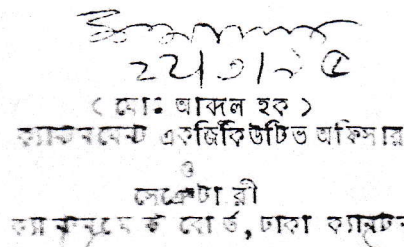 ২২/৩/৯৫
( মোঃ আবদল হক )
ক্যান্টনমেন্ট একজিকিউটিভ অফিসার
ও
সেক্রেটারী
ক্যান্টনমেন্ট বোর্ড, ঢাকা ক্যান্টন